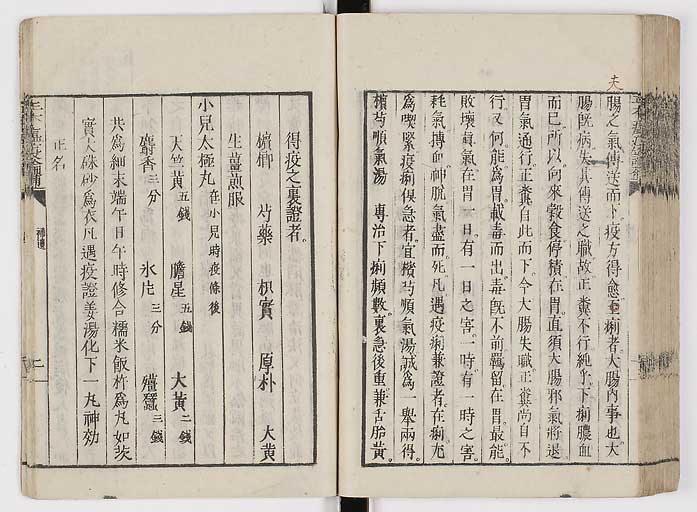 夫腸之氣傳送而下疫方得愈。且痢者大腸內事也。大
腸既病失其傳送之職故正糞不行純乎下痢膿血
而已所以向來穀食停積在胃直須大腸邪氣將退
胃氣通行正糞自此而下。今大腸失職正糞尚自不
行又何能爲胃載毒而出毒既不前羈留在胃最能
敗壞眞氣在胃一日有一日之害一時有一時之害
耗氣搏血神脫氣盡而死凡遇疫痢兼證者在痢尤
爲喫緊疫痢俱急者宜檳芍順氣湯誠爲一擧兩得
檳芍順氣湯 專治下痢頻數裏急後重兼舌胎黃
得疫之裏證者。
檳榔 芍藥 枳實 厚朴 大黃
生薑煎服
小兒太極丸 在小兒時疫條後
天竺黃五錢 膽星五錢 大黃三錢
麝香三分 氷片三分 殭蠶三錢
共爲細末端午日午時修合糯米飯杵爲丸如芡
實大硃砂爲衣凡遇疫證姜湯化下一丸神効
正名
補遺